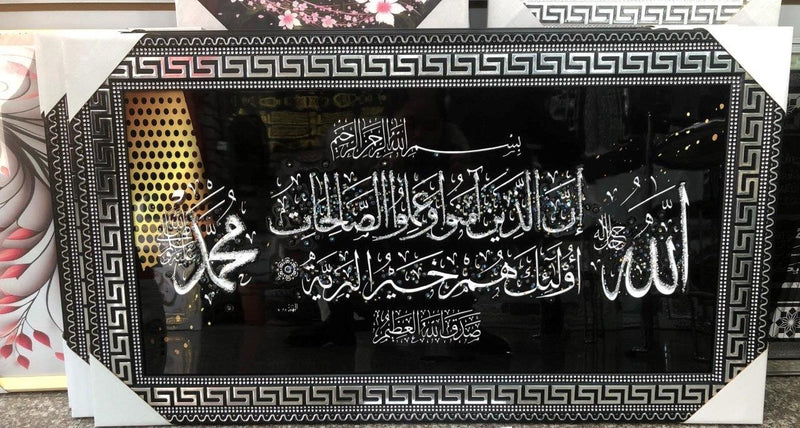 بسم الله الرحمن الرحيم
الله
جل جلاله
إن الذين آمنوا وعملوا الصالحات
أولئك هم خير البرية
محمد
صدق الله العظيم